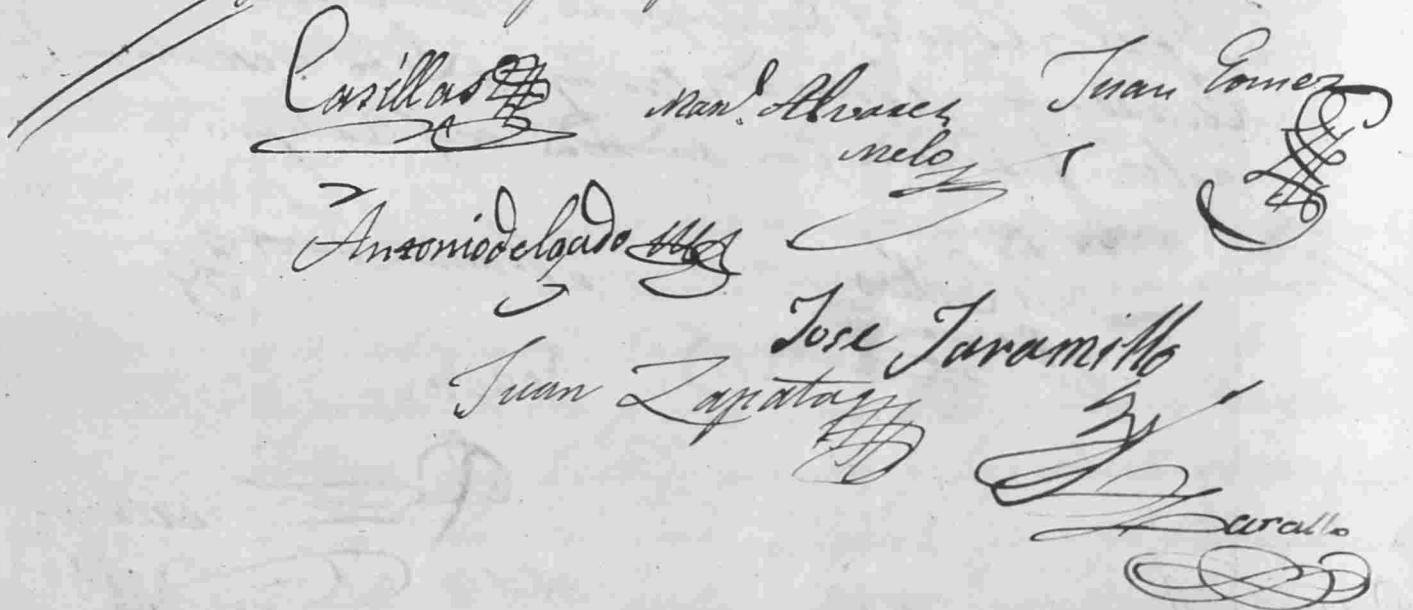 Casillas
Man.l Alvarez
Melo
Juan Gomez
Antonio delgado
Jose Jaramillo
Juan Zapata